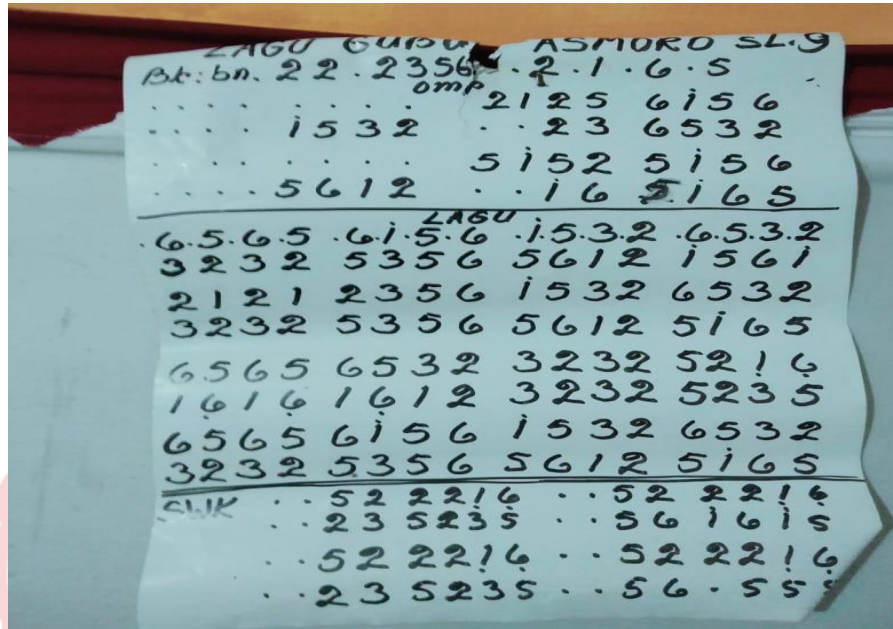 LAGU GUBUG ASMORO SL.9
Bk: bn. 22.2356. .2.1.6.5
omp
. . . . . . . . 2125 6i56
. . . . i532 . . 23 6532
. . . . . . . . 5i52 5i56
. . . . 5612 . . i6 5i65
LAGU
.6.5.6.5 .6.i.5.6 .i.5.3.2 .6.5.3.2
3232 5356 5612 i56i
2121 2356 i532 6532
3232 5356 5612 5i65
6565 6532 3232 521̣6̣
16̣16̣ 16̣12 3232 5235
6565 6i56 i532 6532
3232 5356 5612 5i65
SWK . . 52 221̣6̣ . . 52 221̣6̣
. . 23 5235 . . 56 i6i5
. . 52 221̣6̣ . . 52 221̣6̣
. . 23 5235 . . 56 . 555